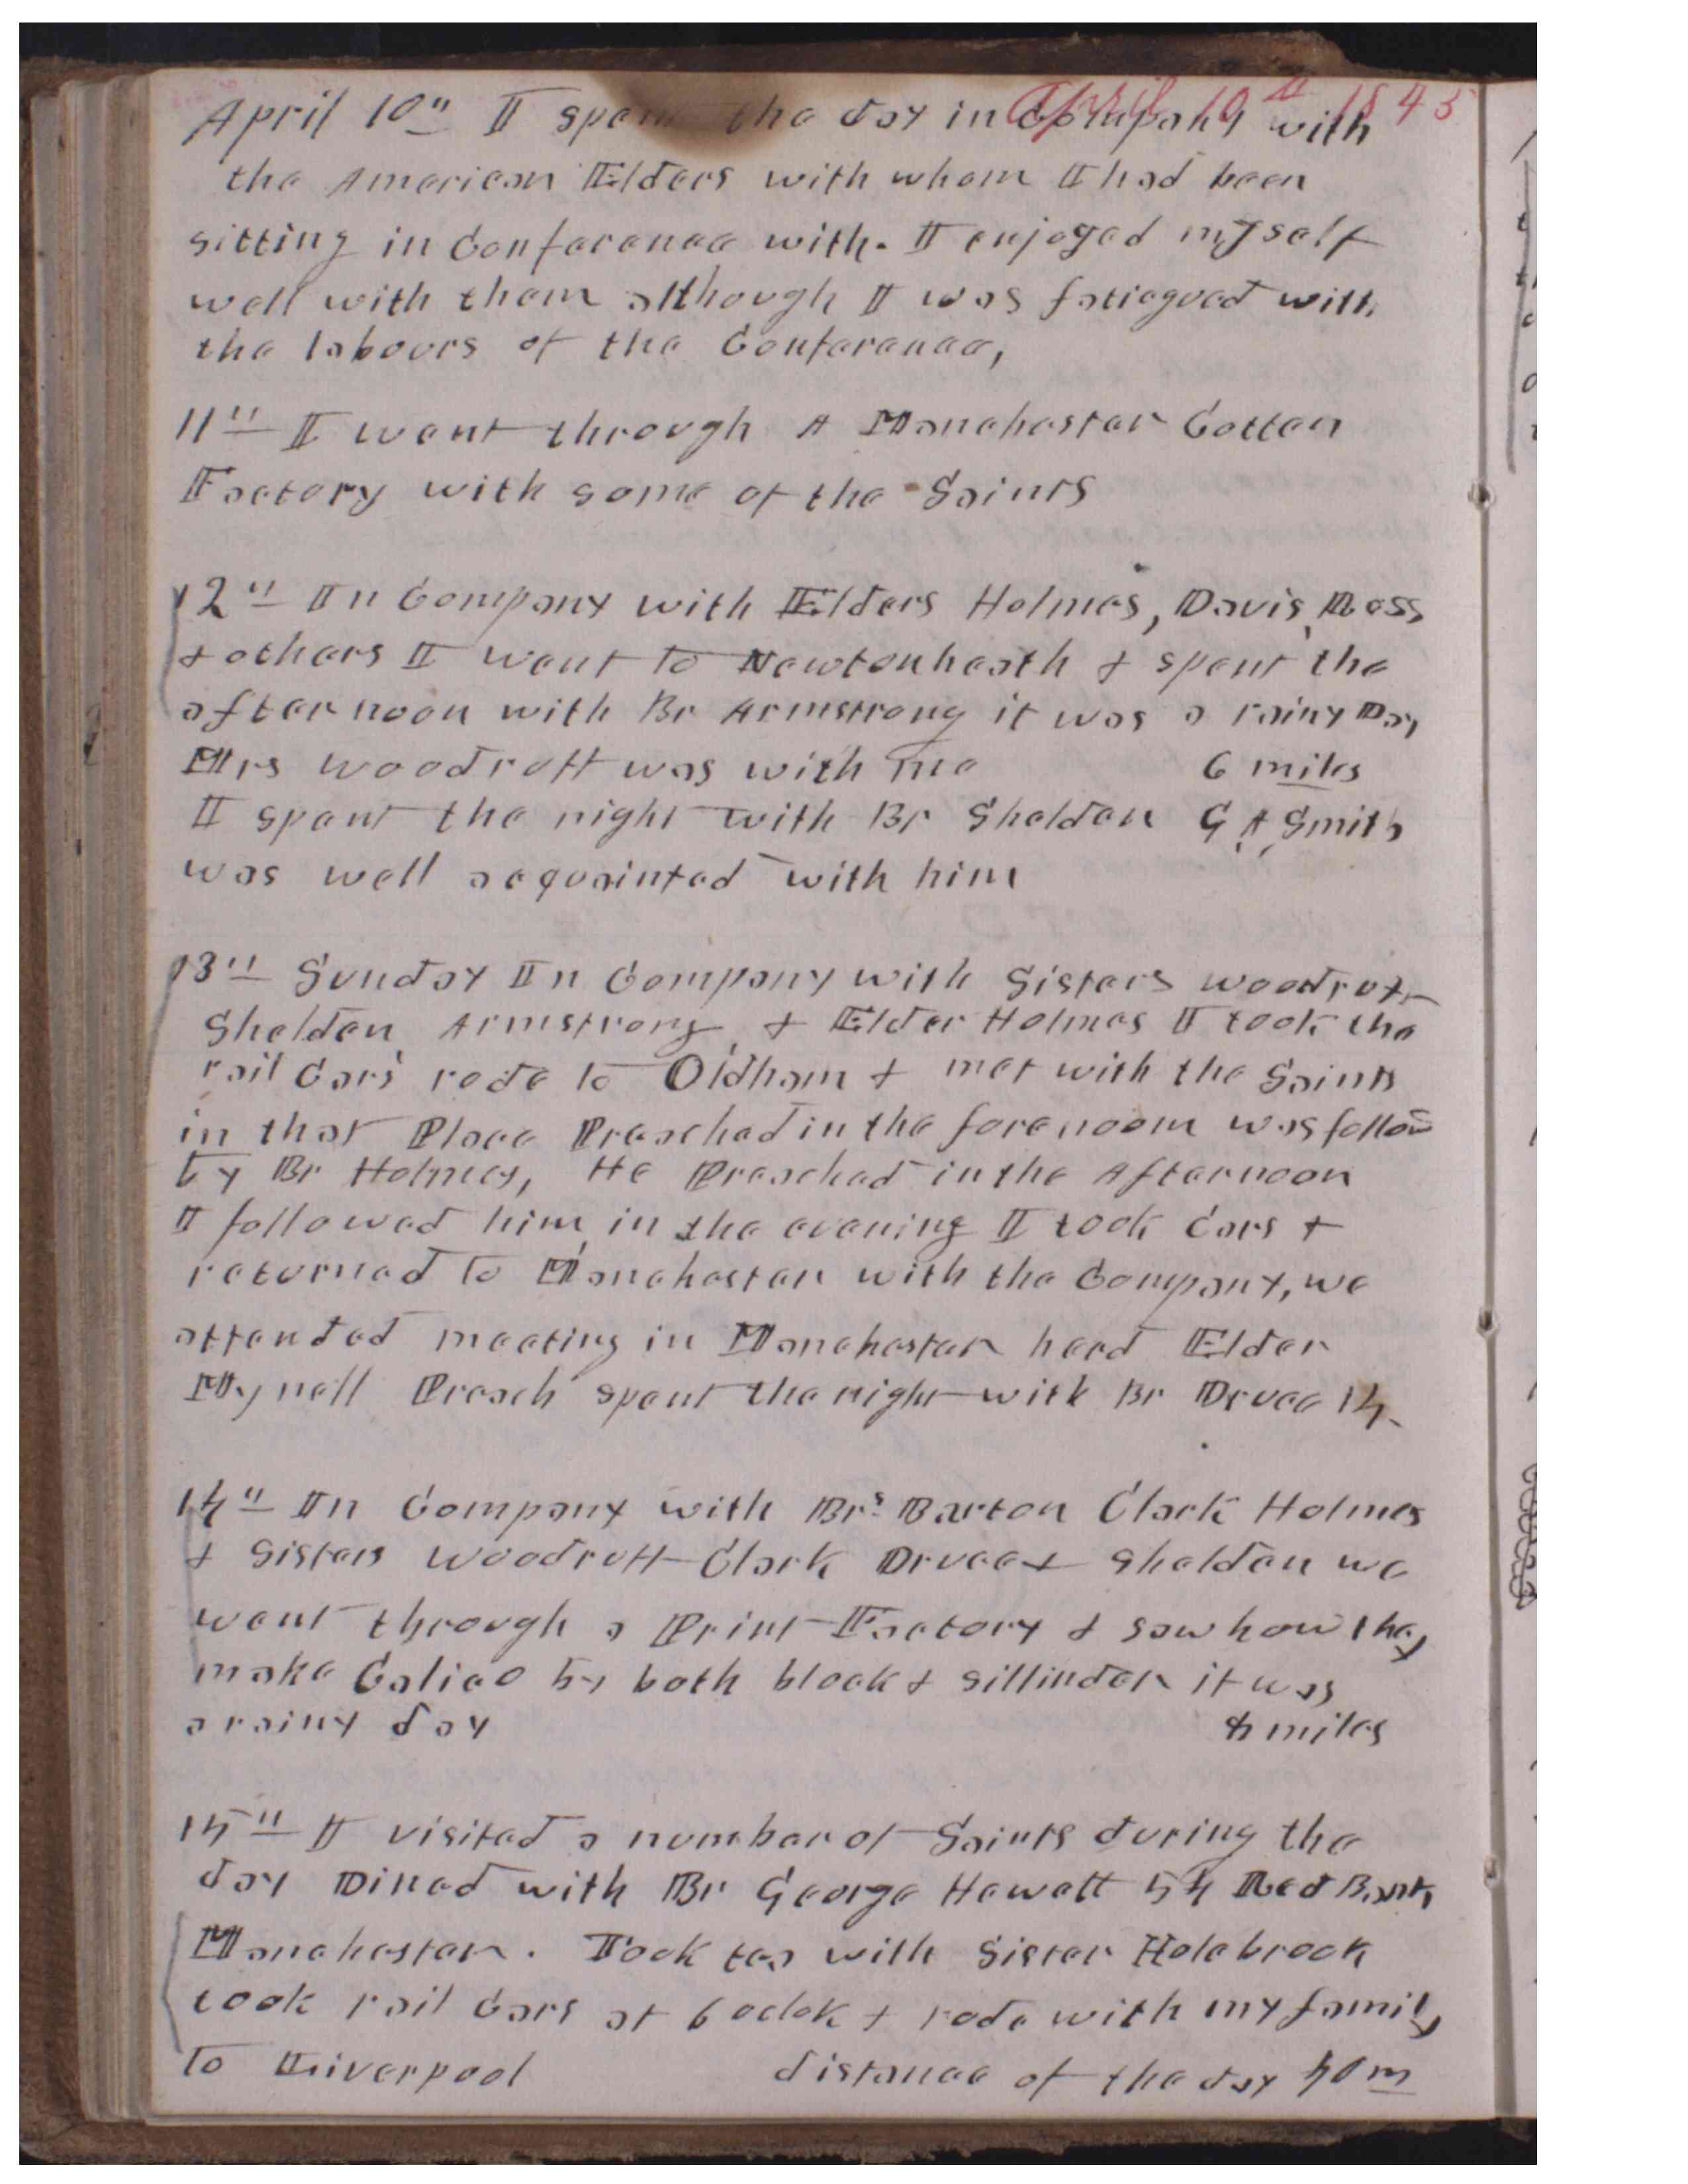 April 10th 1845
April 10" I spent the day in Company with
the American Elders with whom I had been
sitting in Conference with. I enjoyed myself
well with them although I was fatiegued with
the labours of the Conference,
11" I went through A Manchester Cotten
Factory with some of the Saints
12" In Company with Elders Holmes, Davis, Ross,
& others I went to Newtonheath & spent the
afternoon with Br Armstrong it was a rainy Day
Mrs Woodruff was with me 6 miles
I spent the night with Br Shelden G, A, Smith
was well acquainted with him
13" Sunday In Company with Sisters Woodruff
Shelden Armstrong, & Elder Holmes I took the
rail Cars rode to Oldham & met with the Saints
in that Place Preached in the forenoom was follow
by Br Holmes, He Preached in the Afternoon
I followed him, in the evening I took Cars &
returned to Manchester with the Company, we
attended meeting in Manchester heard Elder
Mynell Preach spent the night with Br Druce 14
14" In Company with Brs Barton Clark Holmes
& Sisters Woodruff Clark Druce & Shelden we
went through a Print Factory & saw how they
make Calico by both block & sillinder it was
a rainy day 4 miles
15" I visited a number of Saints during the
day Dined with Br George Hewett 54 Red Bank
Manchester. Took tea with Sister Holebrook
took rail Cars at 6 oclok & rode with my family
to Liverpool distance of the day 40 m